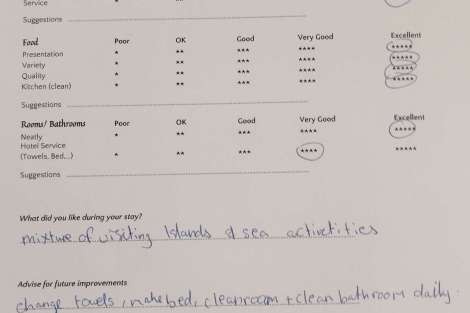 Service
Suggestions
Food Poor OK Good Very Good Excellent
Presentation * ** *** **** *****
Variety * ** *** **** *****
Quality * ** *** **** *****
Kitchen (clean) * ** *** **** *****
Suggestions
Rooms/ Bathrooms Poor OK Good Very Good Excellent
Neatly * ** *** **** *****
Hotel Service
(Towels, Bed...) * ** *** **** *****
Suggestions
What did you like during your stay?
mixture of visiting Islands & sea activetities
Advise for future improvements
change towels, make bed, clean room + clean bathroom daily.